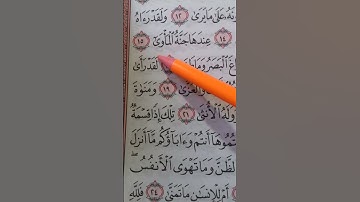 مَا يَرَىٰ ١٢ وَلَقَدْ رَءَاهُ
١٤ عِندَهَا جَنَّةُ ٱلْمَأْوَىٰٓ ١٥
ٱلْبَصَرُ وَمَا لَقَدْ رَأَىٰ
وَٱلْعُزَّىٰ ١٩ وَمَنَوٰةَ
وَلَهُ ٱلْأُنثَىٰ ٢١ تِلْكَ إِذًا قِسْمَةٌ
تُمُوهَآ أَنتُمْ وَءَابَآؤُكُم مَّآ أَنزَلَ
ٱلظَّنَّ وَمَا تَهْوَى ٱلْأَنفُسُ ۖ
أَمْ لِلْإِنسَٰنِ مَا تَمَنَّىٰ ٢٤ فَلِلَّهِ